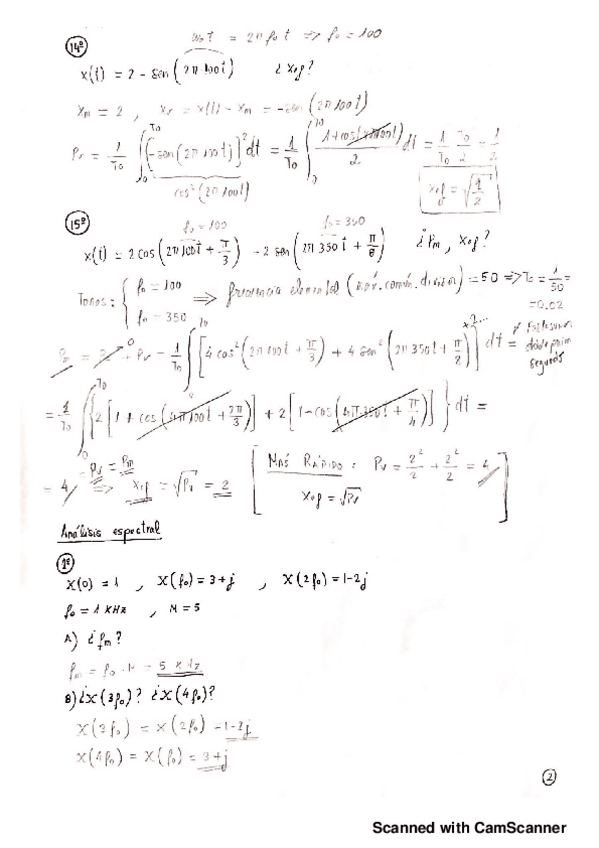 14º
ω₀t = 2π f₀ t => f₀ = 100
x(t) = 2 - sen(2π100t) ¿ xef?
xm = 2 , xv = x(t) - xm = -sen(2π100t)
Pv = 1/T₀ ∫₀^T₀ [-sen(2π100t)]² dt = 1/T₀ ∫₀^T₀ (1+cos(4π100t))/2 dt = 1/T₀ T₀/2 = 1/2
cos²(2π100t)
xef = √(1/2)
15º
f₀ = 100 f₀ = 350
x(t) = 2 cos(2π100t + π/3) - 2 sen(2π350t + π/8) ¿Pm, xef?
Tonos: { f₀ = 100 f₀ = 350 => frecuencia elemental (máx. común. divisor) = 50 => T₀ = 1/50 =
= 0.02
Pm = + Pv = 1/T₀ ∫₀^T₀ [4 cos²(2π100t + π/3) + 4 sen²(2π350t + π/2)] dt =
= 1/T₀ ∫₀^T₀ {2[1 + cos(4π100t + 2π/3)] + 2[1 - cos(4π350t + π/4)]} dt =
= 4 = Pv = Pm => xef = √Pv = 2
[MÁS RÁPIDO: Pv = 2²/2 + 2²/2 = 4
xef = √Pv]
Análisis espectral
1º
X(0) = 1 , X(f₀) = 3+j , X(2f₀) = 1-2j
f₀ = 1 KHz , N = 5
A) ¿fm?
fm = f₀ · N = 5 KHz
B) ¿X(3f₀)? ¿X(4f₀)?
X(3f₀) = X(2f₀) = 1-2j
X(4f₀) = X(f₀) = 3+j
2
Scanned with CamScanner